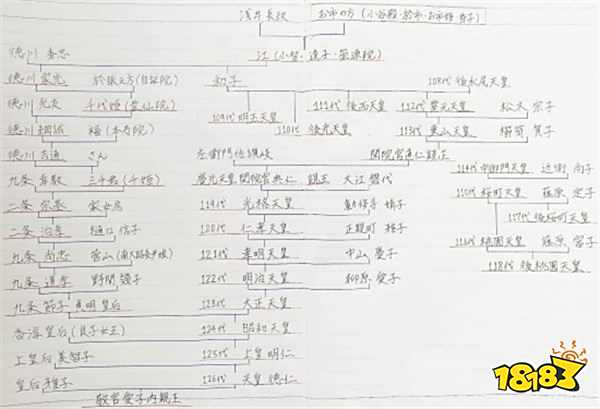 浅井長政 お市の方(小谷殿・於市・お市姫・市子)
徳川 秀忠 江(小督・達子・崇源院)
徳川 家光 於振之方(自証院) 和子 108代 後水尾天皇
徳川 光友 千代姫(霊仙院) 111代 後西天皇 112代 霊元天皇 松木 宗子
109代 明正天皇
徳川 綱誠 福(本寿院) 110代 後光天皇 113代 東山天皇 櫛笥 賀子
徳川 吉通 さん 左衛門佐讃岐 閑院宮直仁親王
114代 中御門天皇 近衛 尚子
九条 幸教 三千君(千姫) 慶光天皇 閑院宮典仁 親王 大江 磐代
二条 宗基 家女房 119代 光格天皇 勧修寺 婧子 115代 桜町天皇 藤原 定子
117代 後桜町天皇
二条 治孝 樋口 信子 120代 仁孝天皇 正親町 雅子 116代 桃園天皇 藤原 富子
九条 尚忠 菅山 121代 孝明天皇 中山 慶子 118代 後桃園天皇
九条 道孝 野間 幾子 122代 明治天皇 柳原 愛子
九条 節子 貞明 皇后 123代 大正天皇
香淳 皇后(良子女王) 124代 昭和 天皇
上皇后 美智子 125代 上皇 明仁
皇后 雅子 126代 天皇 徳仁
敬宮愛子内親王
18183